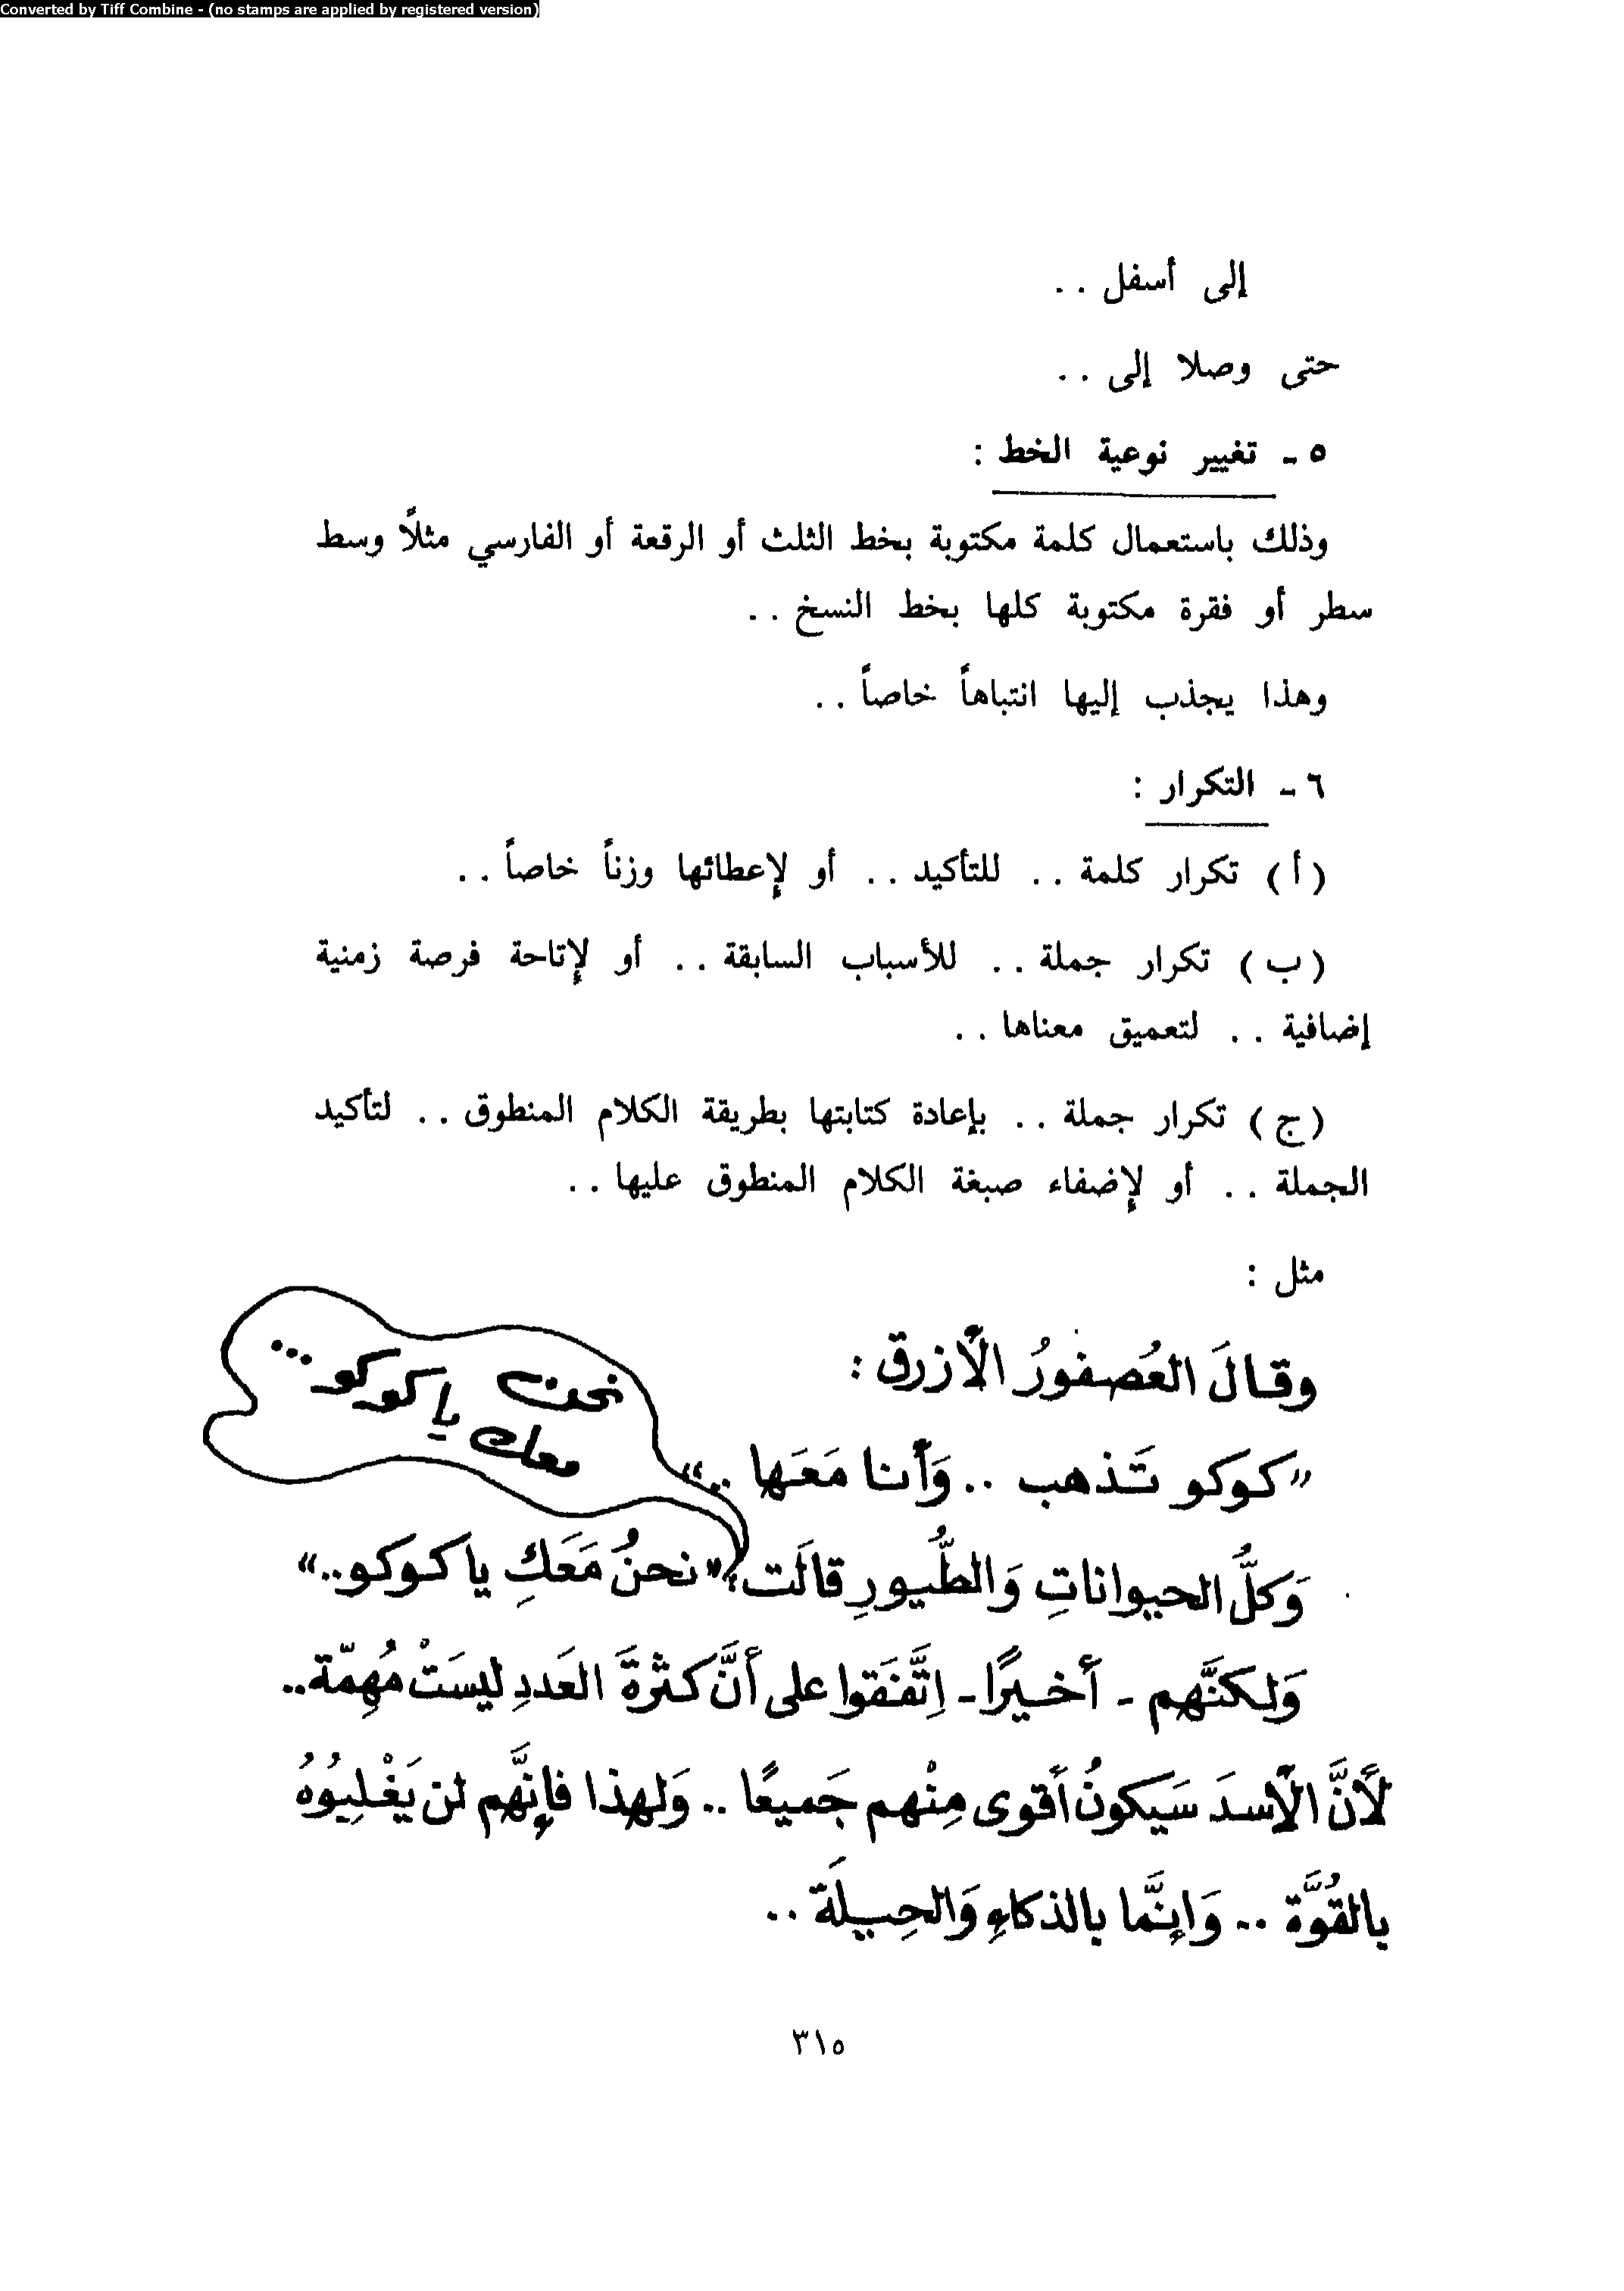 Converted by Tiff Combine - (no stamps are applied by registered version)
إلى أسفل . .
حتى وصلا إلى . .
٥ ـ تغيير نوعية الخط :
وذلك باستعمال كلمة مكتوبة بخط الثلث أو الرقعة أو الفارسي مثلاً وسط
سطر أو فقرة مكتوبة كلها بخط النسخ . .
وهذا يجذب إليها انتباهاً خاصاً . .
٦ ـ التكرار :
( أ ) تكرار كلمة . . للتأكيد . . أو لإعطائها وزناً خاصاً . .
( ب ) تكرار جملة . . للأسباب السابقة . . أو لإتاحة فرصة زمنية
إضافية . . لتعميق معناها . .
( ج ) تكرار جملة . . بإعادة كتابتها بطريقة الكلام المنطوق . . لتأكيد
الجملة . . أو لإضفاء صبغة الكلام المنطوق عليها . .
مثل :
وقالَ العُصفورُ الأزرق :
نحن يا كوكو ...
معك
«كوكو تَذهب .. وَأَنا مَعَها ..»
وَكلُّ الحيواناتِ وَالطُّيورِ قالَت : «نحنُ مَعَكِ يا كوكو..»
وَلكنَّهم ـ أخيرًا ـ اِتَّفَقوا على أنَّ كثرةَ العَددِ ليسَتْ مُهِمّة..
لأنَّ الأسدَ سَيكونُ أقوى مِنْهم جَميعًا .. وَلهذا فإنَّهم لن يَغْلِبُوهُ
بالقُوَّة .. وَإنَّما بالذكاءِ وَالحِيلَة ..
٣١٥